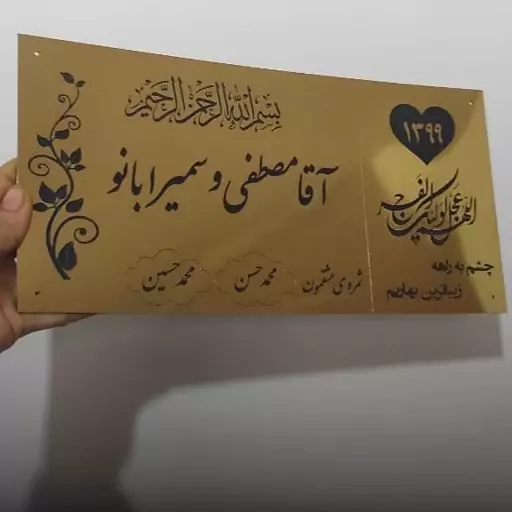 بسم الله الرحمن الرحیم
آقا مصطفی و سمیرا بانو
ثمره ی عشقمون
محمد حسن
محمد حسین
۱۳۹۹
اللهم عجل لولیک الفرج
چشم به راهه
زیباترین بهاریم